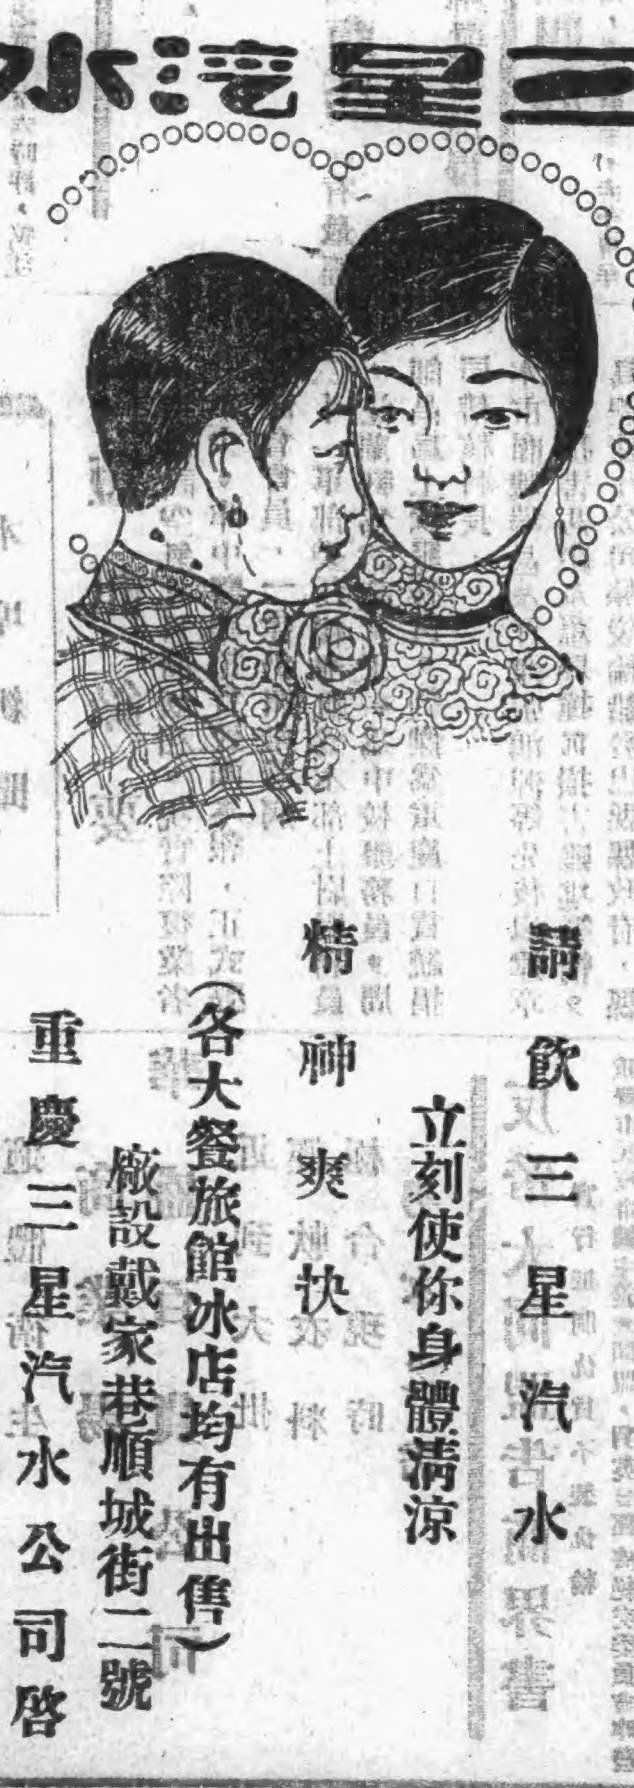 三星汽水
請飲三星汽水
立刻使你身體清涼
精神爽快
(各大餐旅館冰店均有出售)
廠設戴家巷順城街二號
重慶三星汽水公司啓